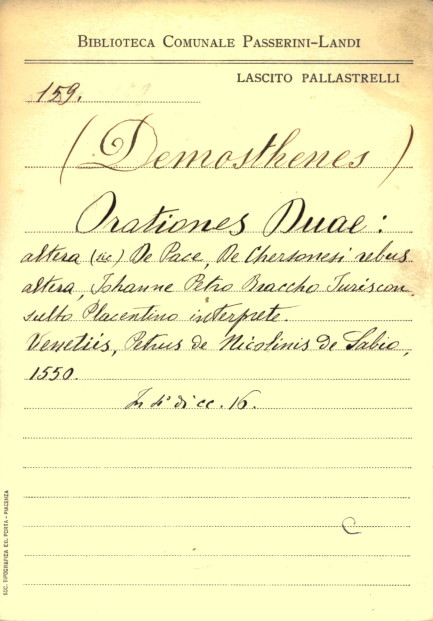 BIBLIOTECA COMUNALE PASSERINI-LANDI
LASCITO PALLASTRELLI
159.
(Demosthenes)
Orationes Duae:
altera (sic) De Pace, De Chersonesi rebus
altera, Iohanne Petro Braccho Iuriscon
sulto Placentino interprete.
Venetiis, Petrus de Nicolinis de Sabio,
1550.
In 4° di cc. 16.
C
SOC. TIPOGRAFICA EX. PORTA - PIACENZA